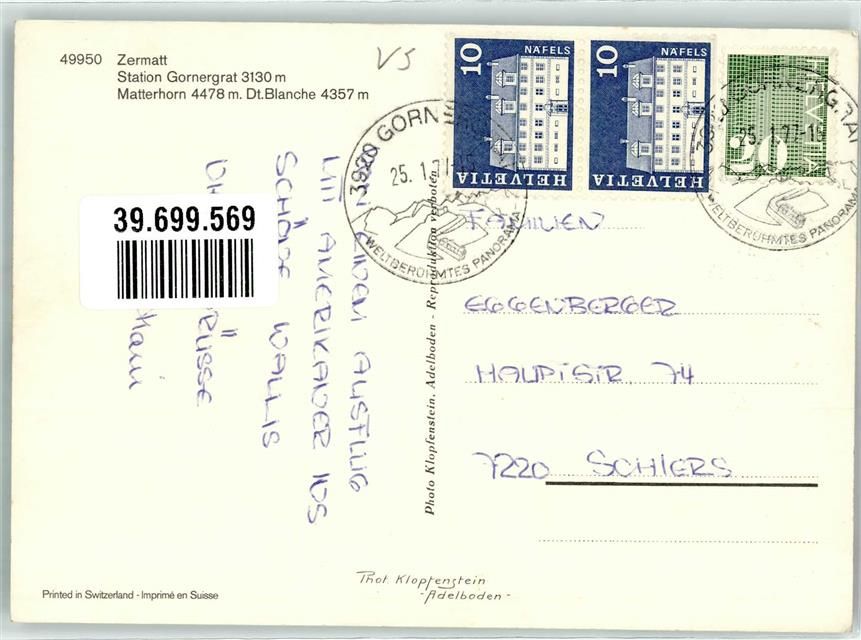 49950 Zermatt
Station Gornergrat 3130 m
Matterhorn 4478 m. Dt. Blanche 4357 m
VS
10 NÄFELS
HELVETIA
10 NÄFELS
HELVETIA
HELVETIA
20
3920 GORN
25. 1.77-15
WELTBERÜHMTES PANORAMA
3920 GORNERGRAT
25. 1.77-15
WELTBERÜHMTES PANORAMA
39.699.569
EINEM AUSFLUG
MIT AMERIKANER INS
SCHÖNE WALLIS
GRÜSSE
Photo Klopfenstein, Adelboden - Reproduktion verboten
FAMILIEN
EGGENBERGER
HAUPTSTR. 74
7220 SCHIERS
Phot. Klopfenstein
-Adelboden-
Printed in Switzerland - Imprimé en Suisse